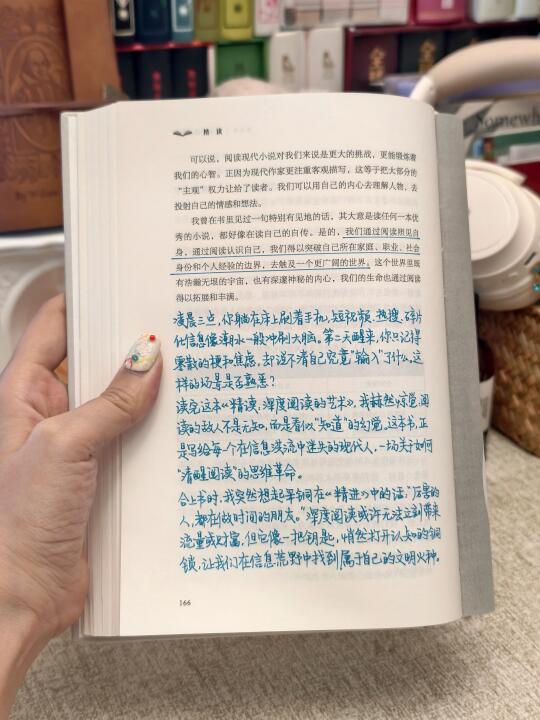 精 读
可以说，阅读现代小说对我们来说是更大的挑战，更能锻炼着
我们的心智。正因为现代作家更注重客观描写，这等于把大部分的
“主观”权力让给了读者。我们可以用自己的内心去理解人物，去
投射自己的情感和想法。
我曾在书里见过一句特别有见地的话，其大意是读任何一本优
秀的小说，都好像在读自己的自传。是的，我们通过阅读照见自
身，通过阅读认识自己，我们得以突破自己所在家庭、职业、社会
身份和个人经验的边界，去触及一个更广阔的世界。这个世界里既
有浩瀚无垠的宇宙，也有深邃神秘的内心，我们的生命也通过阅读
得以拓展和丰满。
凌晨三点，你躺在床上刷着手机，短视频、热搜、碎片
化信息像潮水一般冲刷大脑。第二天醒来，你只记得
零散的梗和焦虑，却说不清自己究竟“输入”了什么。这
样的场景是否熟悉？
读完这本《精读：深度阅读的艺术》，我赫然惊觉：阅
读的敌人不是无知，而是看似“知道”的幻觉，这本书，正
是写给每个在信息洪流中迷失的现代人，一场关于如何
“清醒阅读”的思维革命。
合上书时，我突然想起采铜在《精进》中的话：“厉害的
人，都在做时间的朋友。”深度阅读或许无法立刻带来
流量或财富，但它像一把钥匙，悄然打开认知的铜
锁，让我们在信息荒野中找到属于自己的文明火种。
166
Somewhe